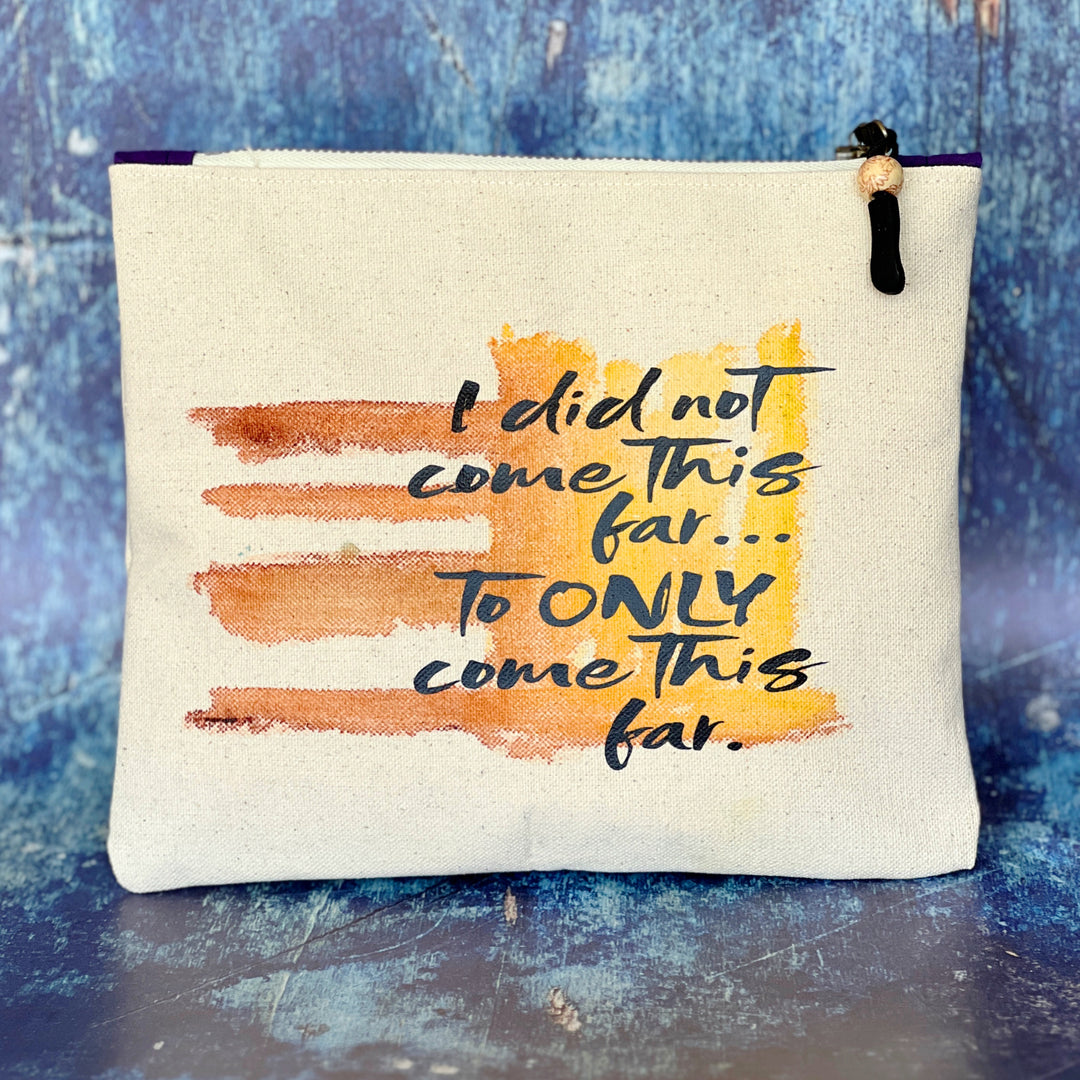 I did not
come this
far...
To ONLY
come this
far.